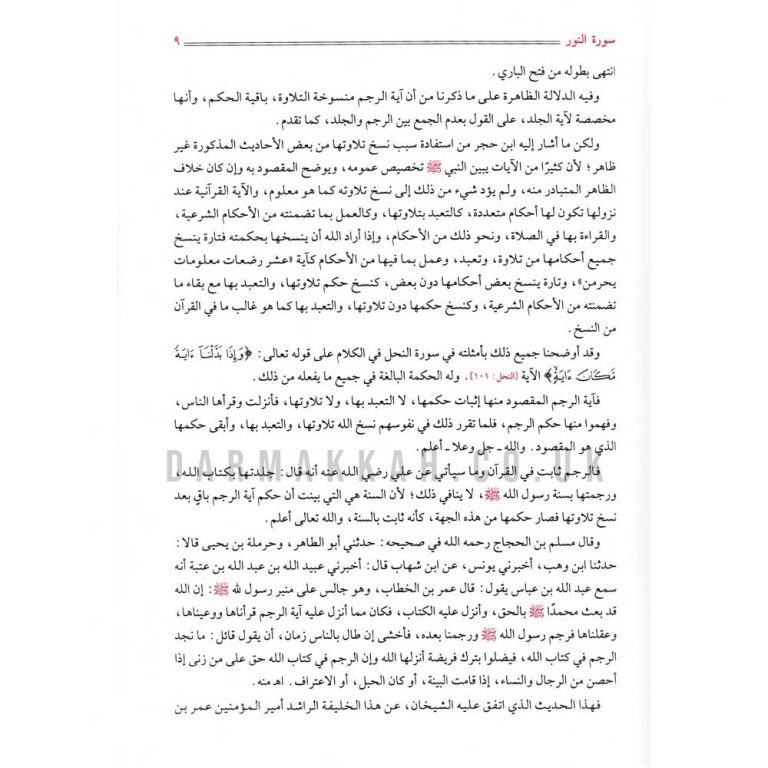 سورة النور ٩
انتهى بطوله من فتح الباري.
وفيه الدلالة الظاهرة على ما ذكرنا من أن آية الرجم منسوخة التلاوة، باقية الحكم، وأنها
مخصصة لآية الجلد، على القول بعدم الجمع بين الرجم والجلد، كما تقدم.
ولكن ما أشار إليه ابن حجر من استفادة سبب نسخ تلاوتها من بعض الأحاديث المذكورة غير
ظاهر؛ لأن كثيرًا من الآيات يبين النبي ﷺ تخصيص عمومه، ويوضح المقصود به وإن كان خلاف
الظاهر المتبادر منه، ولم يؤد شيء من ذلك إلى نسخ تلاوته كما هو معلوم، والآية القرآنية عند
نزولها تكون لها أحكام متعددة، كالتعبد بتلاوتها، وكالعمل بما تضمنته من الأحكام الشرعية،
والقراءة بها في الصلاة، ونحو ذلك من الأحكام، وإذا أراد الله أن ينسخها بحكمته فتارة ينسخ
جميع أحكامها من تلاوة، وتعبد، وعمل بما فيها من الأحكام كآية «عشر رضعات معلومات
يحرمن»، وتارة ينسخ بعض أحكامها دون بعض، كنسخ حكم تلاوتها، والتعبد بها مع بقاء ما
تضمنته من الأحكام الشرعية، وكنسخ حكمها دون تلاوتها، والتعبد بها كما هو غالب ما في القرآن
من النسخ.
وقد أوضحنا جميع ذلك بأمثلته في سورة النحل في الكلام على قوله تعالى: ﴿وَإِذَا بَدَّلْنَآ ءَايَةً
مَّكَانَ ءَايَةٍ﴾ الآية [النحل: ١٠١]. وله الحكمة البالغة في جميع ما يفعله من ذلك.
فآية الرجم المقصود منها إثبات حكمها، لا التعبد بها، ولا تلاوتها، فأنزلت وقرأها الناس،
وفهموا منها حكم الرجم، فلما تقرر ذلك في نفوسهم نسخ الله تلاوتها، والتعبد بها، وأبقى حكمها
الذي هو المقصود. والله ـ جل وعلا ـ أعلم.
فالرجم ثابت في القرآن وما سيأتي عن علي رضي الله عنه أنه قال: جلدتها بكتاب الله،
DARMAKKAH.CO.UK
ورجمتها بسنة رسول الله ﷺ، لا ينافي ذلك؛ لأن السنة هي التي بينت أن حكم آية الرجم باقٍ بعد
نسخ تلاوتها فصار حكمها من هذه الجهة، كأنه ثابت بالسنة، والله تعالى أعلم.
وقال مسلم بن الحجاج رحمه الله في صحيحه: حدثني أبو الطاهر، وحرملة بن يحيى قالا:
حدثنا ابن وهب، أخبرني يونس، عن ابن شهاب قال: أخبرني عبيد الله بن عبد الله بن عتبة أنه
سمع عبد الله بن عباس يقول: قال عمر بن الخطاب، وهو جالس على منبر رسول لله ﷺ: إن الله
قد بعث محمدًا ﷺ بالحق، وأنزل عليه الكتاب، فكان مما أنزل عليه آية الرجم قرأناها ووعيناها،
وعقلناها فرجم رسول الله ﷺ ورجمنا بعده، فأخشى إن طال بالناس زمان، أن يقول قائل: ما نجد
الرجم في كتاب الله، فيضلوا بترك فريضة أنزلها الله وإن الرجم في كتاب الله حق على من زنى إذا
أحصن من الرجال والنساء، إذا قامت البينة، أو كان الحبل، أو الاعتراف. اهـ منه.
فهذا الحديث الذي اتفق عليه الشيخان، عن هذا الخليفة الراشد أمير المؤمنين عمر بن